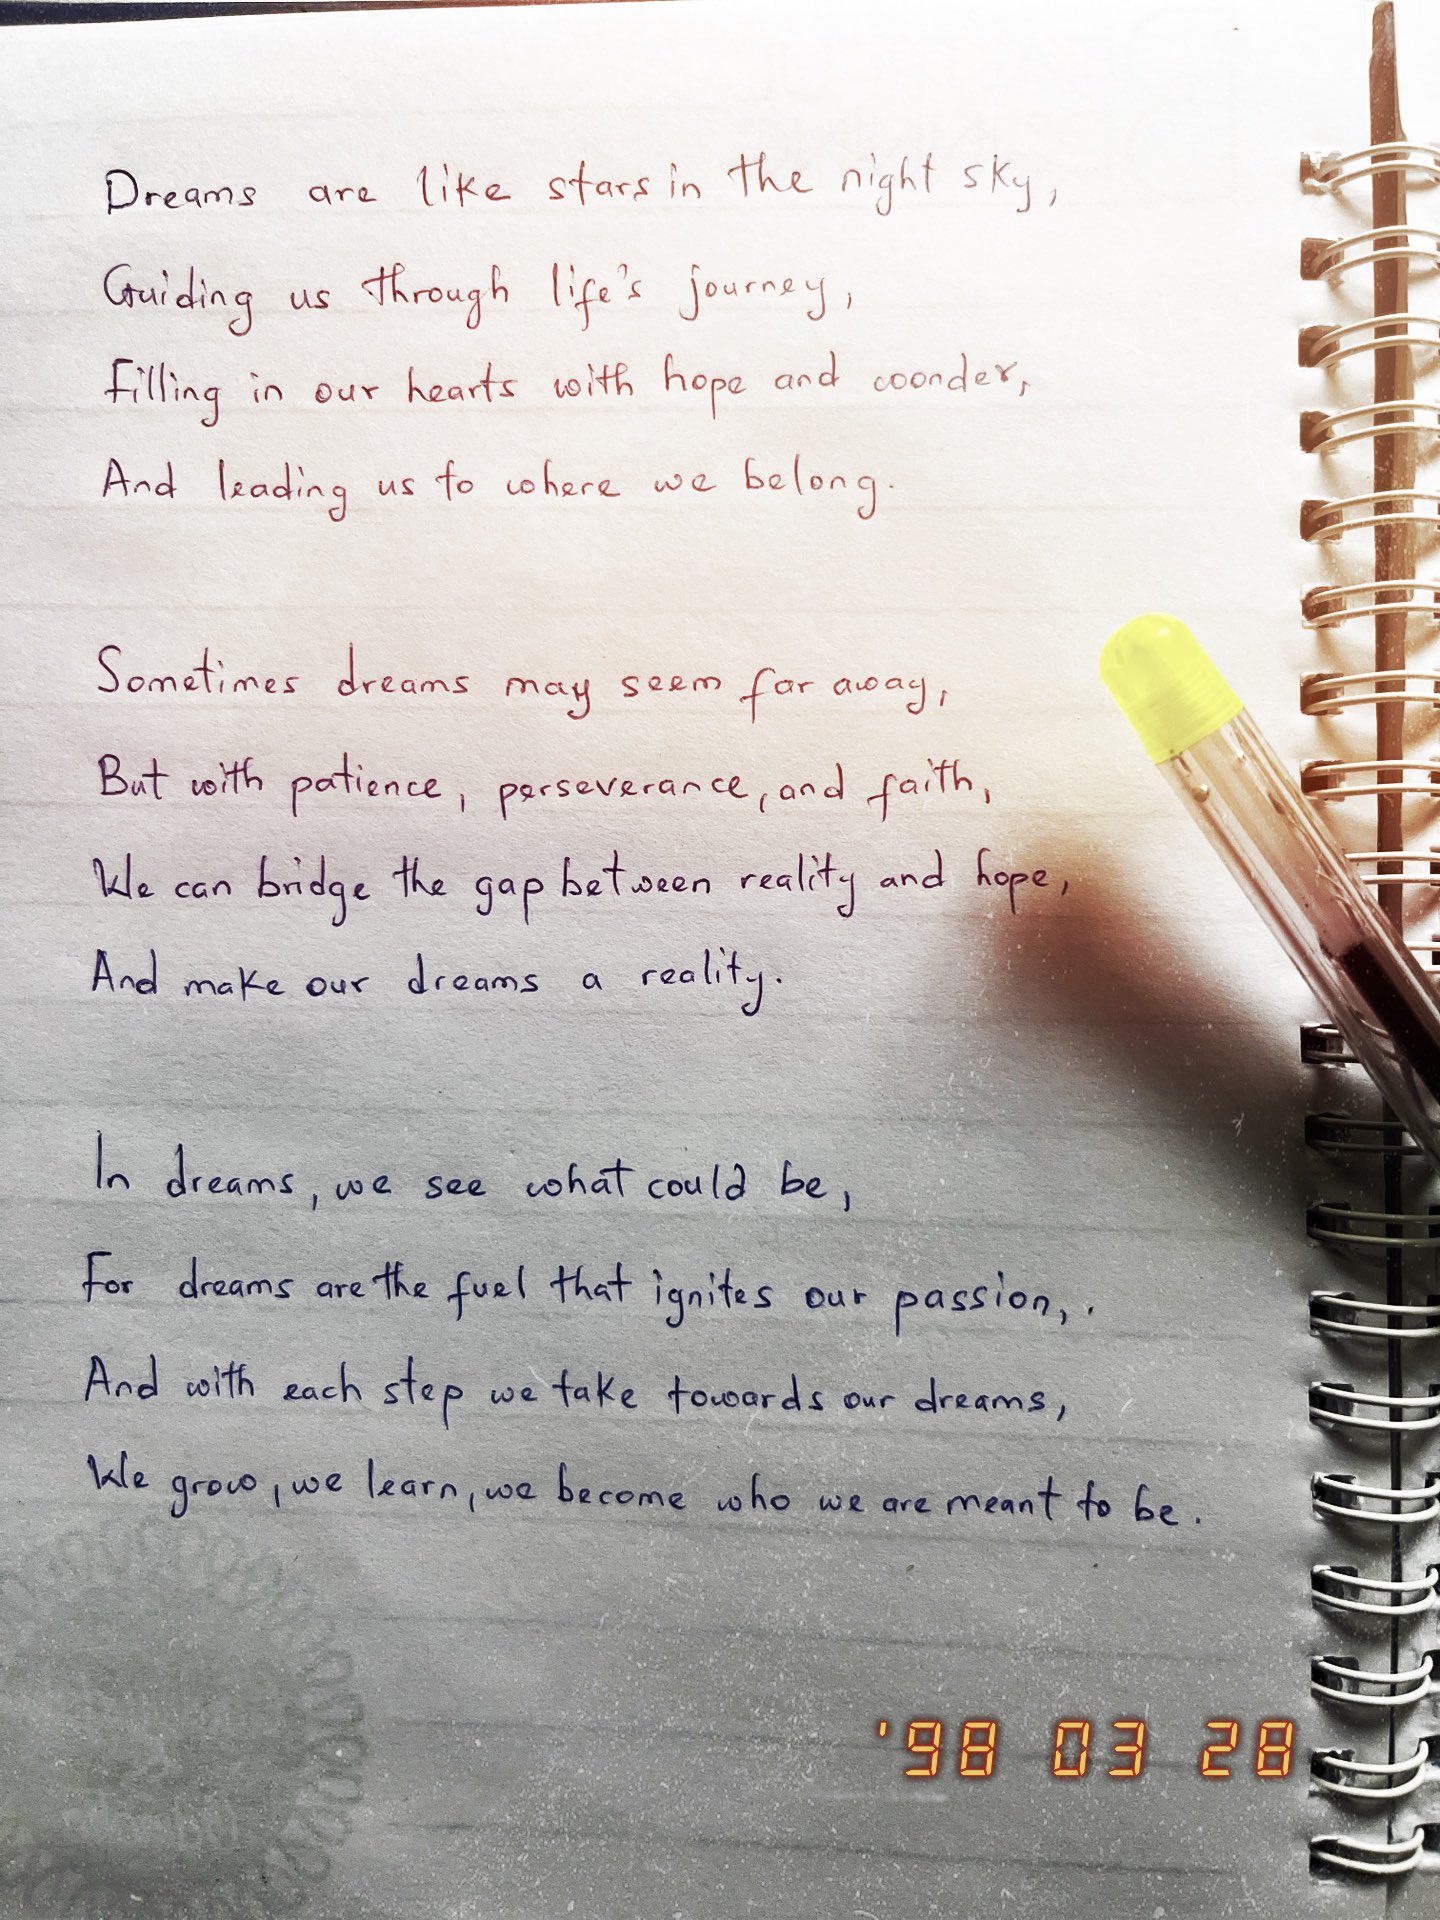 Dreams are like stars in the night sky,
Guiding us through life's journey,
Filling in our hearts with hope and woonder,
And leading us to where we belong.
Sometimes dreams may seem far away,
But with patience, perseverance, and faith,
We can bridge the gap between reality and hope,
And make our dreams a reality.
In dreams, we see what could be,
For dreams are the fuel that ignites our passion, .
And with each step we take towards our dreams,
We grow, we learn, we become who we are meant to be.
'98 03 28